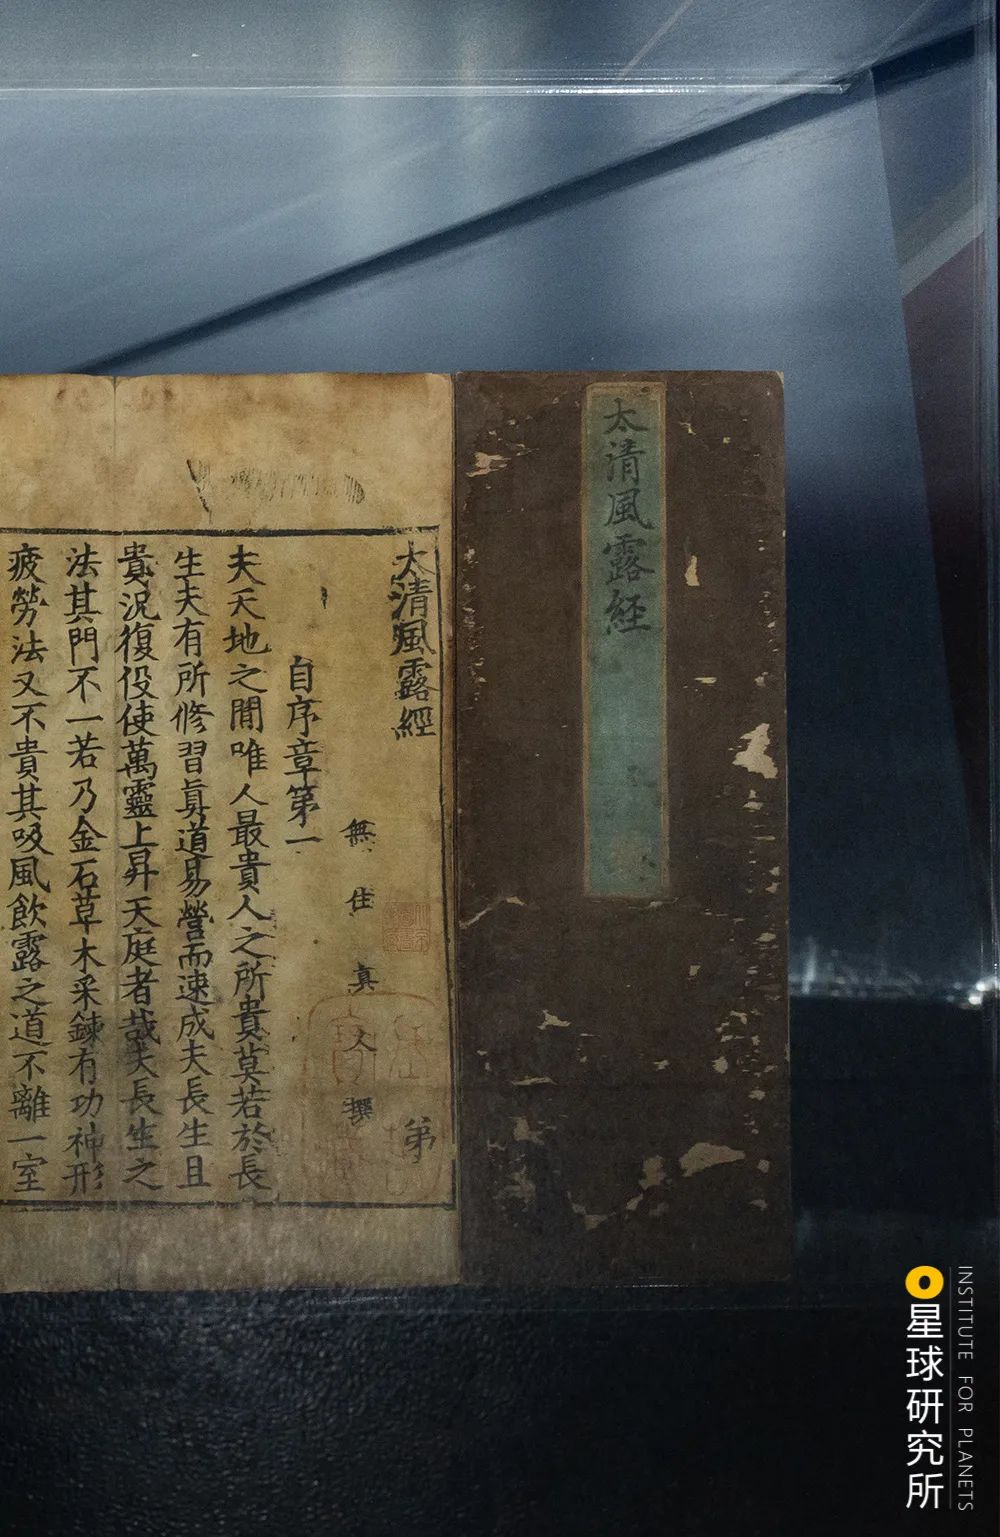 太清風露経
太清風露經
第
無住真人撰
自序章第一
夫天地之間唯人最貴人之所貴莫若於長
生夫有所修習眞道易營而速成夫長生且
貴況復役使萬靈上昇天庭者哉夫長生之
法其門不一若乃金石草木采鍊有功神形
疲勞法又不貴其吸風飲露之道不離一室
星球研究所
INSTITUTE FOR PLANETS